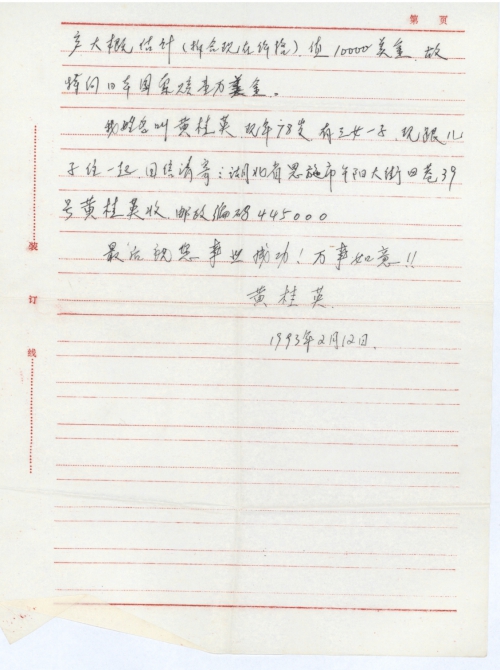 第 页
产大概估计(折合现在价格)值10000美金,故
特向日本国索赔壹万美金。
我姓名叫黄桂英,现年78岁,有三女一子,现跟儿
子住一起,回信请寄:湖北省恩施市午阳大街田巷39
号黄桂英收,邮政编码445000
最后祝您事业成功!万事如意!!
黄桂英
1993年2月12日.
装
订
线